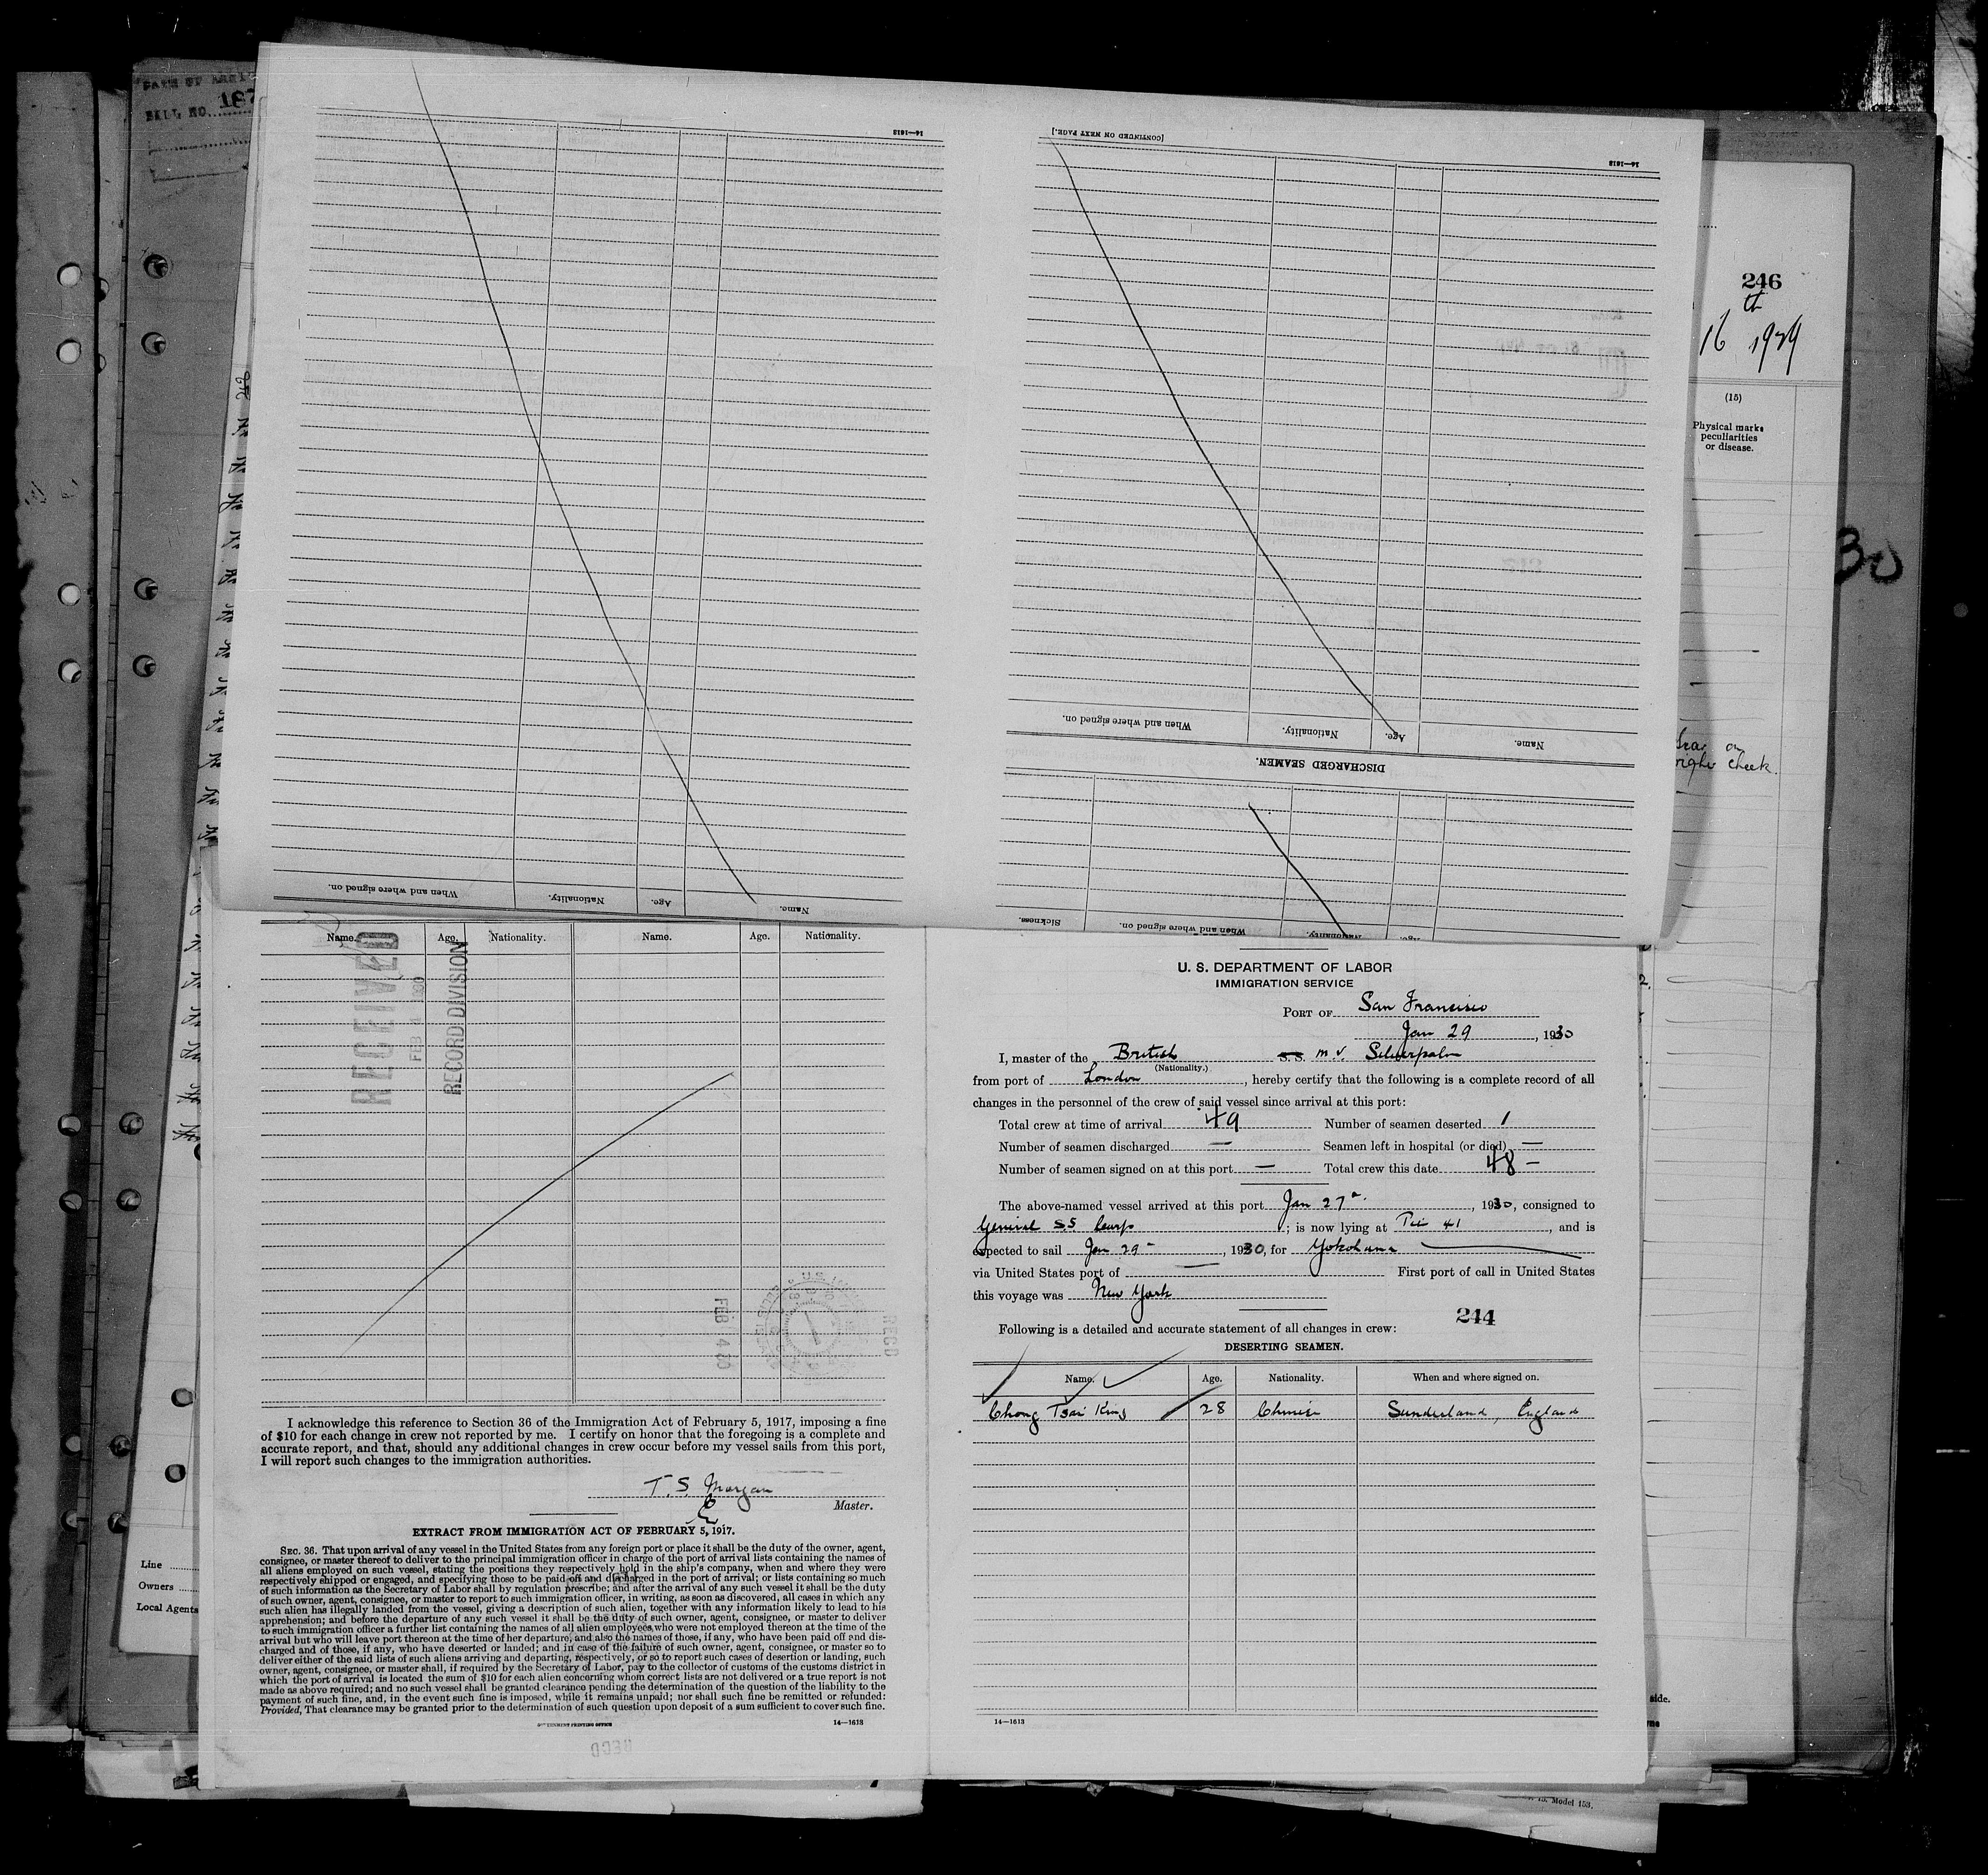 DATE OF
BILL NO.
246
th
16 1929
(15)
Physical marks
peculiarities
or disease.
on
right cheek.
30
14—1613
[CONTINUED ON NEXT PAGE.]
14—1613
When and where signed on.
Nationality.
Age.
Name.
DISCHARGED SEAMEN.
Sickness.
When and where signed on.
Nationality.
Age.
When and where signed on.
Nationality.
Age.
Name.
Name. Age. Nationality. Name. Age. Nationality.
RECEIVED
FEB 4 1930
RECORD DIVISION
FEB 4 30
REC'D
I acknowledge this reference to Section 36 of the Immigration Act of February 5, 1917, imposing a fine
of $10 for each change in crew not reported by me. I certify on honor that the foregoing is a complete and
accurate report, and that, should any additional changes in crew occur before my vessel sails from this port,
I will report such changes to the immigration authorities.
T. S. Morgan
Master.
EXTRACT FROM IMMIGRATION ACT OF FEBRUARY 5, 1917.
SEC. 36. That upon arrival of any vessel in the United States from any foreign port or place it shall be the duty of the owner, agent,
consignee, or master thereof to deliver to the principal immigration officer in charge of the port of arrival lists containing the names of
all aliens employed on such vessel, stating the positions they respectively hold in the ship's company, when and where they were
respectively shipped or engaged, and specifying those to be paid off and discharged in the port of arrival; or lists containing so much
of such information as the Secretary of Labor shall by regulation prescribe; and after the arrival of any such vessel it shall be the duty
of such owner, agent, consignee, or master to report to such immigration officer, in writing, as soon as discovered, all cases in which any
such alien has illegally landed from the vessel, giving a description of such alien, together with any information likely to lead to his
apprehension; and before the departure of any such vessel it shall be the duty of such owner, agent, consignee, or master to deliver
to such immigration officer a further list containing the names of all alien employees who were not employed thereon at the time of the
arrival but who will leave port thereon at the time of her departure, and also the names of those, if any, who have been paid off and dis-
charged and of those, if any, who have deserted or landed; and in case of the failure of such owner, agent, consignee, or master so to
deliver either of the said lists of such aliens arriving and departing, respectively, or so to report such cases of desertion or landing, such
owner, agent, consignee, or master shall, if required by the Secretary of Labor, pay to the collector of customs of the customs district in
which the port of arrival is located the sum of $10 for each alien concerning whom correct lists are not delivered or a true report is not
made as above required; and no such vessel shall be granted clearance pending the determination of the question of the liability to the
payment of such fine, and, in the event such fine is imposed, while it remains unpaid; nor shall such fine be remitted or refunded:
Provided, That clearance may be granted prior to the determination of such question upon deposit of a sum sufficient to cover such fine.
GOVERNMENT PRINTING OFFICE 14—1613
REC'D
U. S. DEPARTMENT OF LABOR
IMMIGRATION SERVICE
PORT OF San Francisco
Jan 29, 1930
I, master of the British S. S. M V. Silverpalm
(Nationality.)
from port of London, hereby certify that the following is a complete record of all
changes in the personnel of the crew of said vessel since arrival at this port:
Total crew at time of arrival 49 Number of seamen deserted 1
Number of seamen discharged — Seamen left in hospital (or died) —
Number of seamen signed on at this port — Total crew this date 48 —
The above-named vessel arrived at this port Jan 27, 1930, consigned to
General SS Corp; is now lying at Pier 41, and is
expected to sail Jan 29, 1930, for Yokohama
via United States port of — First port of call in United States
this voyage was New York
244
Following is a detailed and accurate statement of all changes in crew:
DESERTING SEAMEN.
Name. Age. Nationality. When and where signed on.
Chong Tsai King 28 Chinese Sunderland, England
14—1613
Line
Owners
Local Agents
side.
Model 153.